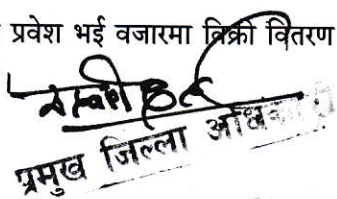 प्रवेश भई वजारमा विक्री वितरण
प्रमुख जिल्ला अधिकारी